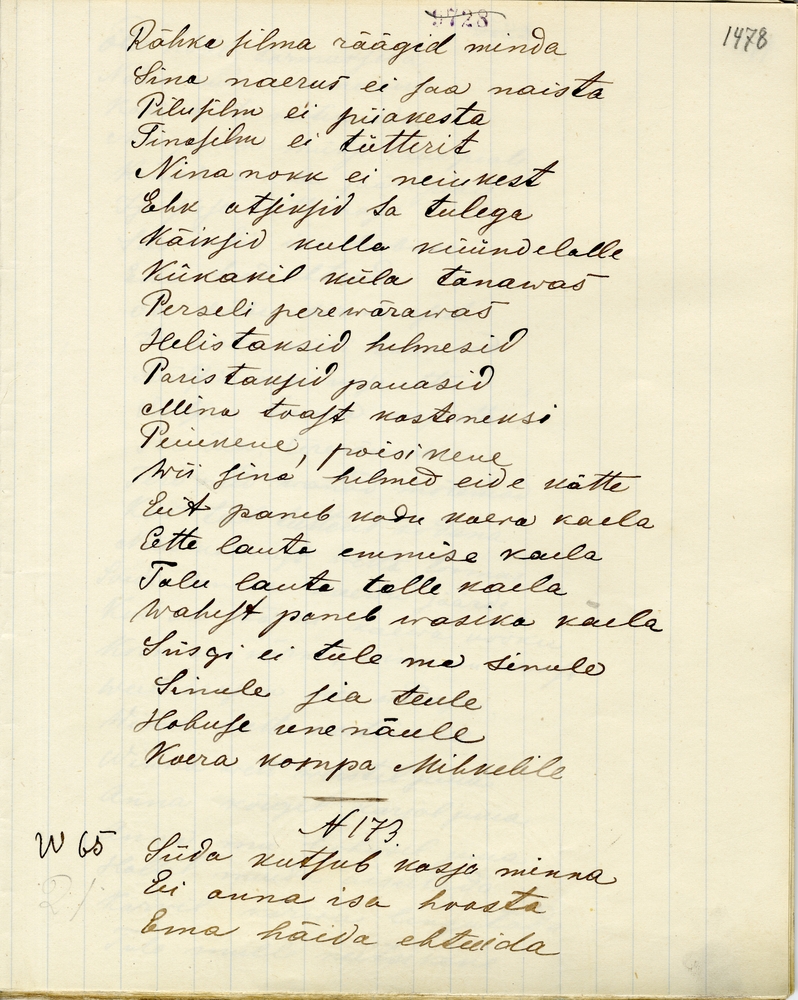 9728
1478
Rähka silma räägid minda
Sina naerus ei saa naista
Pilusilm ei piiakesta
Tinasilm ei tütterit
Ninanokk ei neiukest
Ehk otsiksid sa tulega
Käiksid kulla küündelalle
Kükakil küla tänawas
Perseli perewärawas
Helistaksid helmesid
Paristaksid pauasid
Mina toast kosteneksi
Peiukene, poisikene
Wii sina helmed eide kätte
Eit paneb kodu koera kaela
Eette lauta emmise kaela
Talu lauta talle kaela
Wahest paneb wasika kaela
Siisgi ei tule ma sinule
Sinule sia teule
Hobuse unenäule
Koera kompa Mihkelile
N 173.
W 65 Süda kutsub kosja minna
Ei anna isa hoosta
Ema häida ehteida